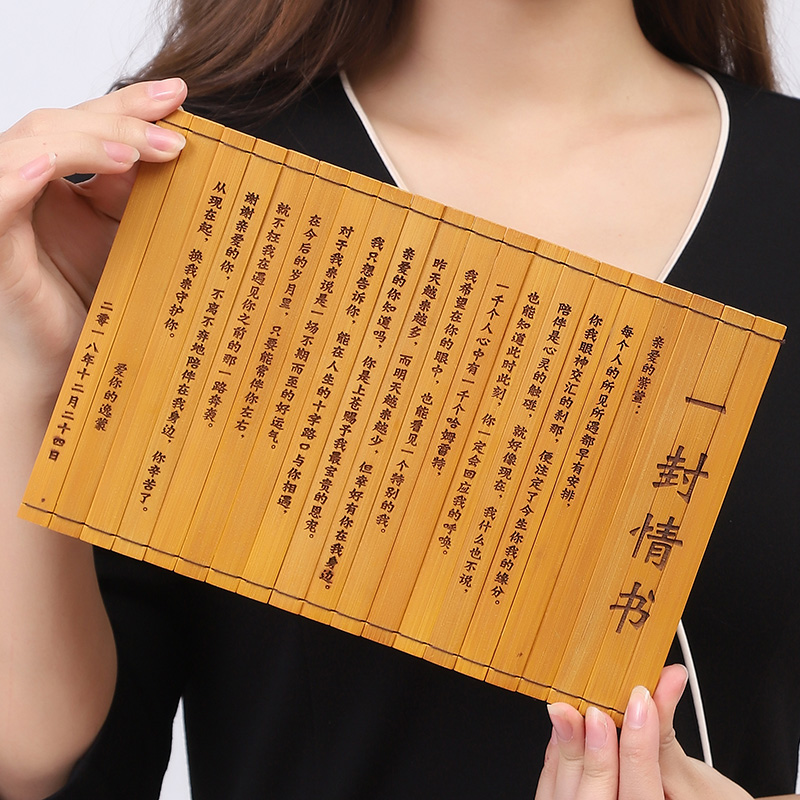 一封情书
亲爱的紫萱：
每个人的所见所遇都早有安排，
你我眼神交汇的刹那，便注定了今生你我的缘分。
陪伴是心灵的触碰，就好像现在，我什么也不说，
也能知道此时此刻，你一定会回应我的呼唤。
一千个人心中有一千个哈姆雷特，
我希望在你的眼中，也能看见一个特别的我。
昨天越来越多，而明天越来越少，但幸好有你在我身边。
亲爱的你知道吗，你是上苍赐予我最宝贵的恩宠。
我只想告诉你，能在人生的十字路口与你相遇，
对于我来说是一场不期而至的好运气。
在今后的岁月里，只要能常伴你左右，
就不枉我在遇见你之前的那一路奔袭。
谢谢亲爱的你，不离不弃地陪伴在我身边，你辛苦了。
从现在起，换我来守护你。
爱你的逸蒙
二零一八年十二月二十四日